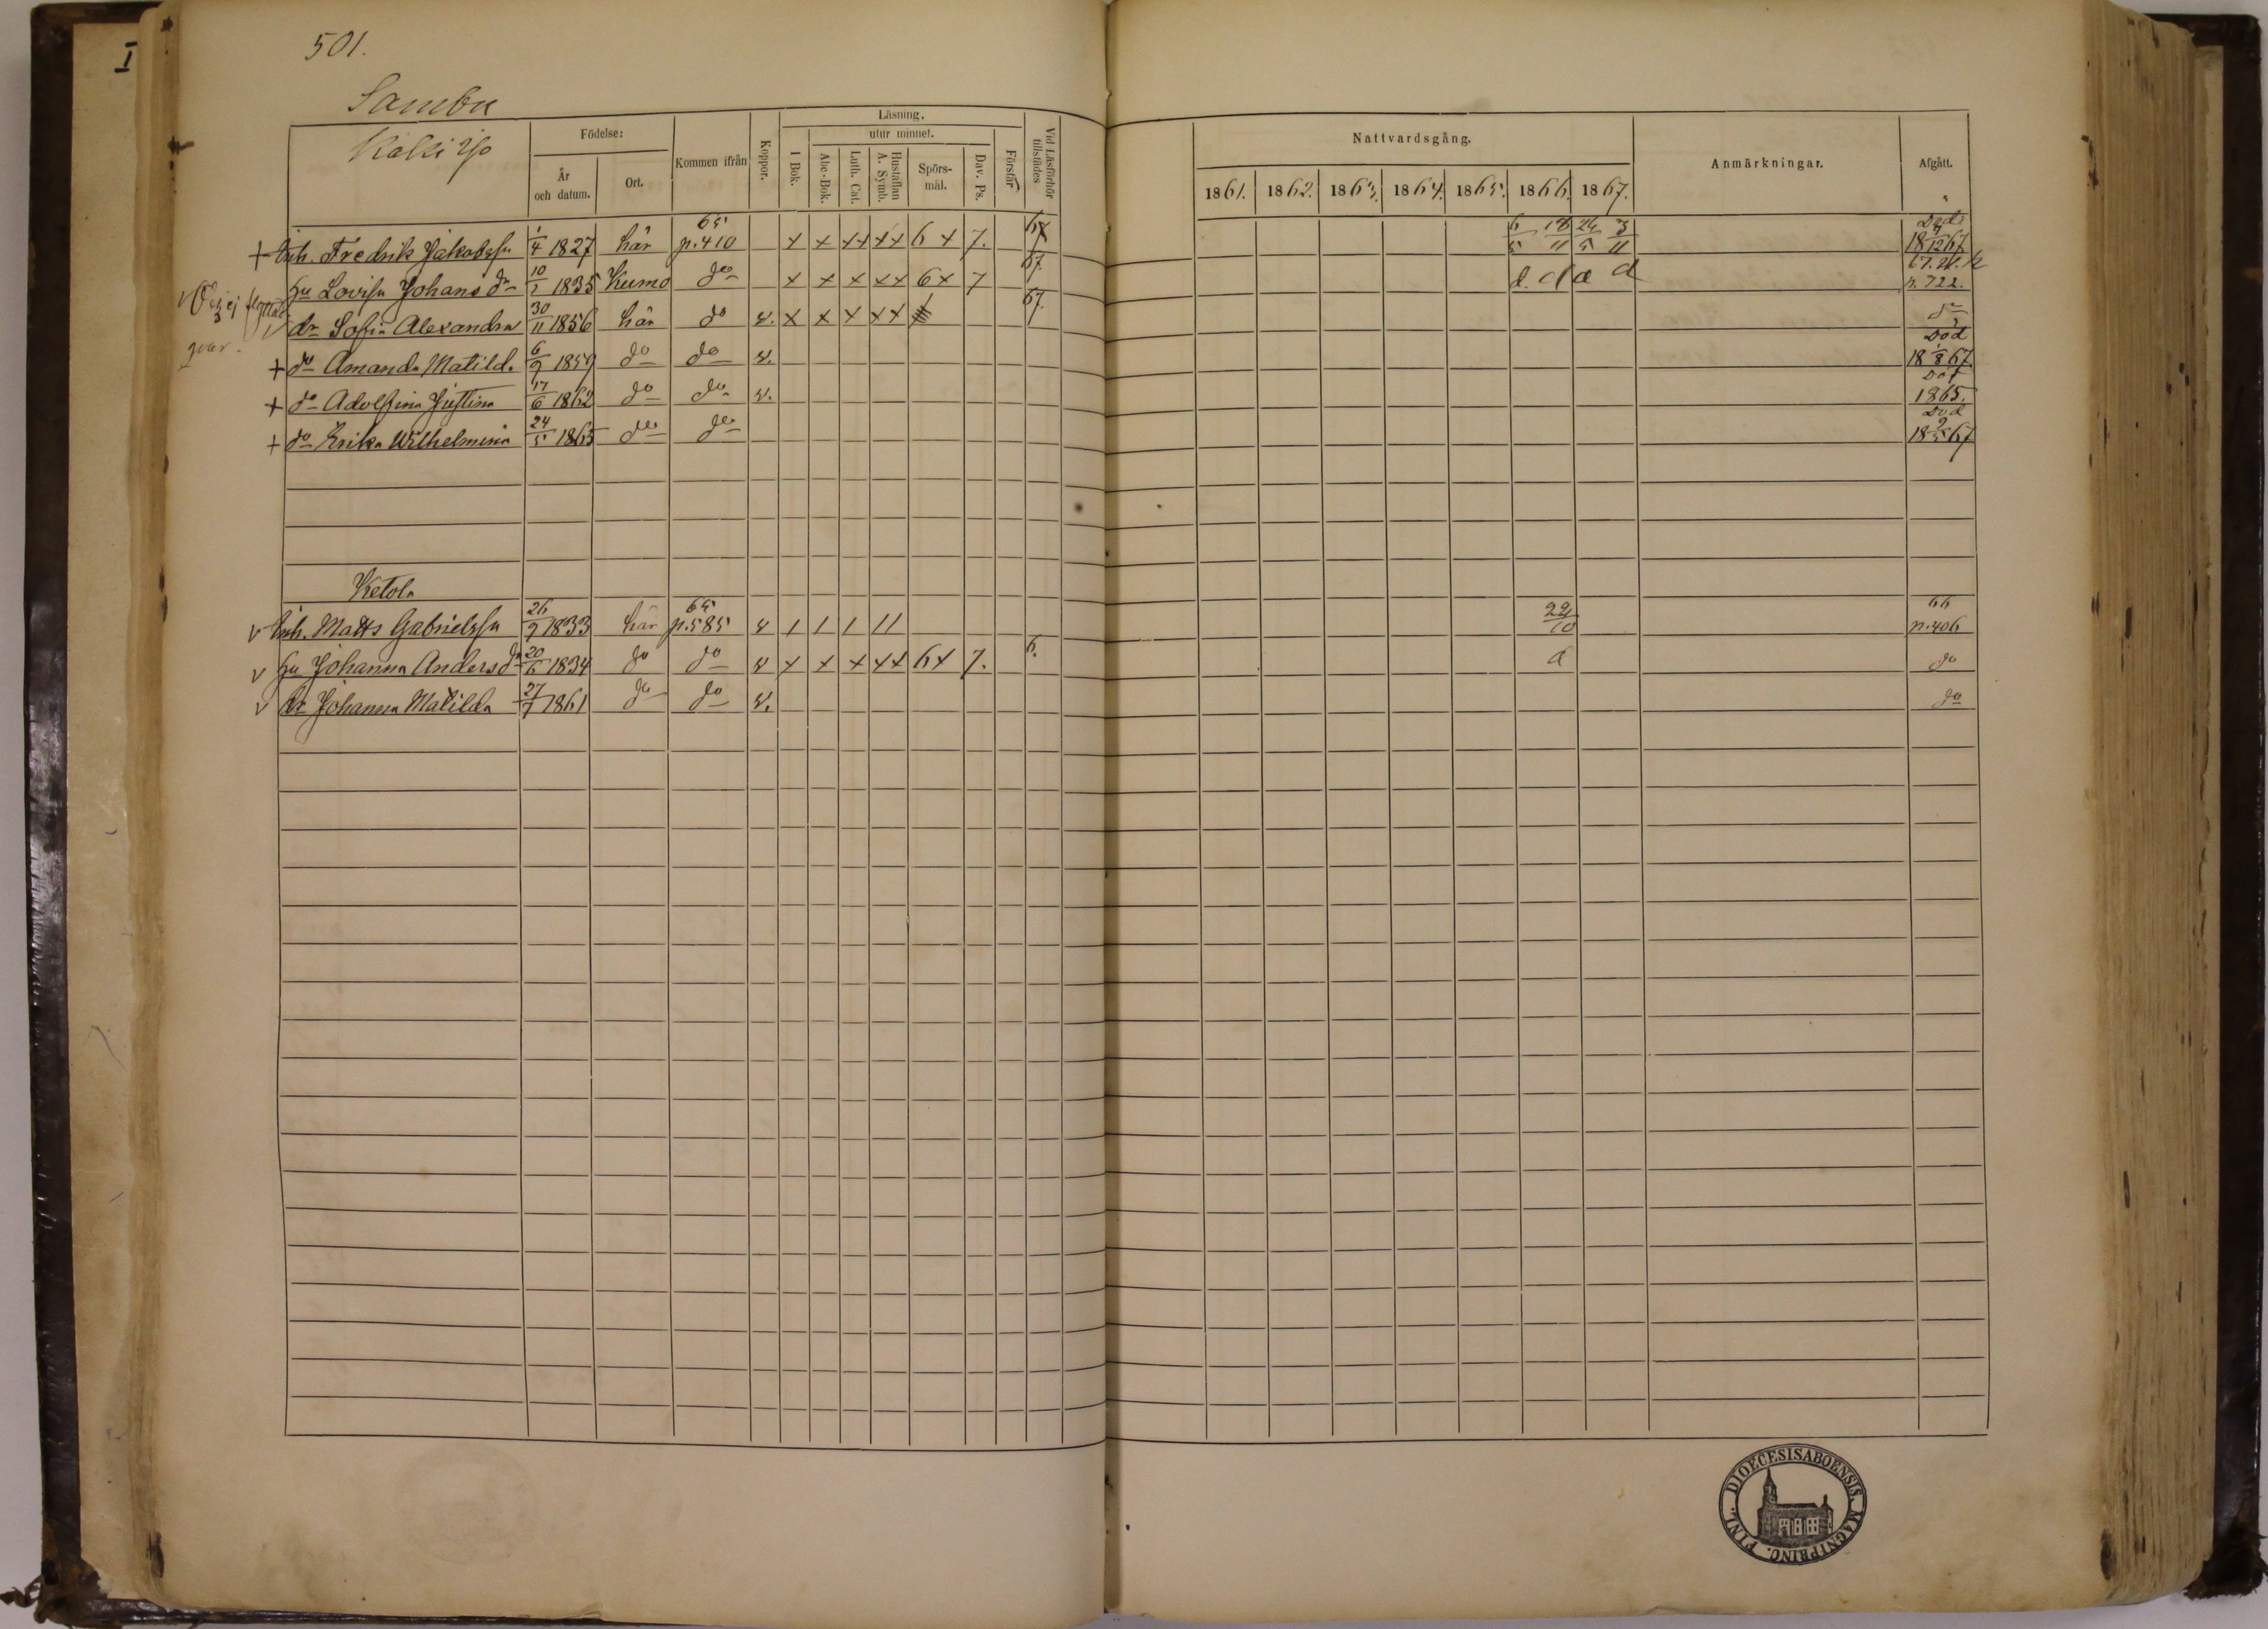 501.
I
Sambu
Födelse: Kommen ifrån Koppor. Läsning. Vid Läsförhör tillstädes
År och datum. Ort. I Bok. utur minnet. Förstår
Abc-Bok. Luth. Cat. Hustaflan A. Symb. Spörs-mål. Dav. Ps.
Nattvardsgång. Anmärkningar. Afgått.
1861. 1862. 1863. 1864. 1865. 1866. 1867.
+ Inh. Fredrik Jakobssn 1/4 1827 här 65 p. 410 x x xx xx 6 x 7. 67 6/5 18/11 24/5 3/11 Död 18 4/12 67
v Hu Lovisa Johansdr 10/1 1835 Kumo do x x x xx 6 x 7 67. d. d d d 67. p. 722.
ej
qvar.
v dr Sofia Alexandra 30/11 1856 här do v. x x x xx 67. do
+ do Amanda Matilda 6/9 1859 do do v. Död 18 1/8 67.
+ do Adolfina Justina 17/6 1862 do do v. Död 1865.
+ do Erika Wilhelmina 24/5 1865 do do Död 18 9/5 67
Ketola
v Inh. Matts Gabrielssn 26/9 1833 här 65 p. 585 v 1 1 1 11 22/10 66 p. 406
v Hu Johanna Andersdr 20/6 1834 do do v x x x xx 6 x 7. 6. d do
v dr Johanna Matilda 27/7 1861 do do v. do
DIOECESIS ABOENSIS. MAGNI PRINC. FINL.